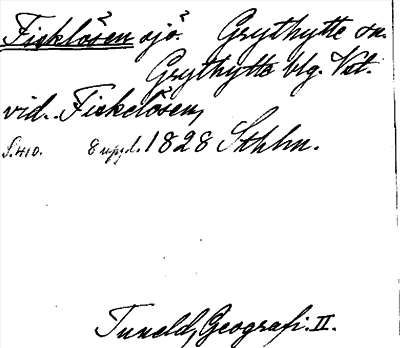 Fisklösen sjö. Grythytte sn.
Grythytte blg. Vst.
vid. Fiskelösen,
S. 410. 8 uppl. 1828 Sthlm.
Tuneld, Geografi. II.